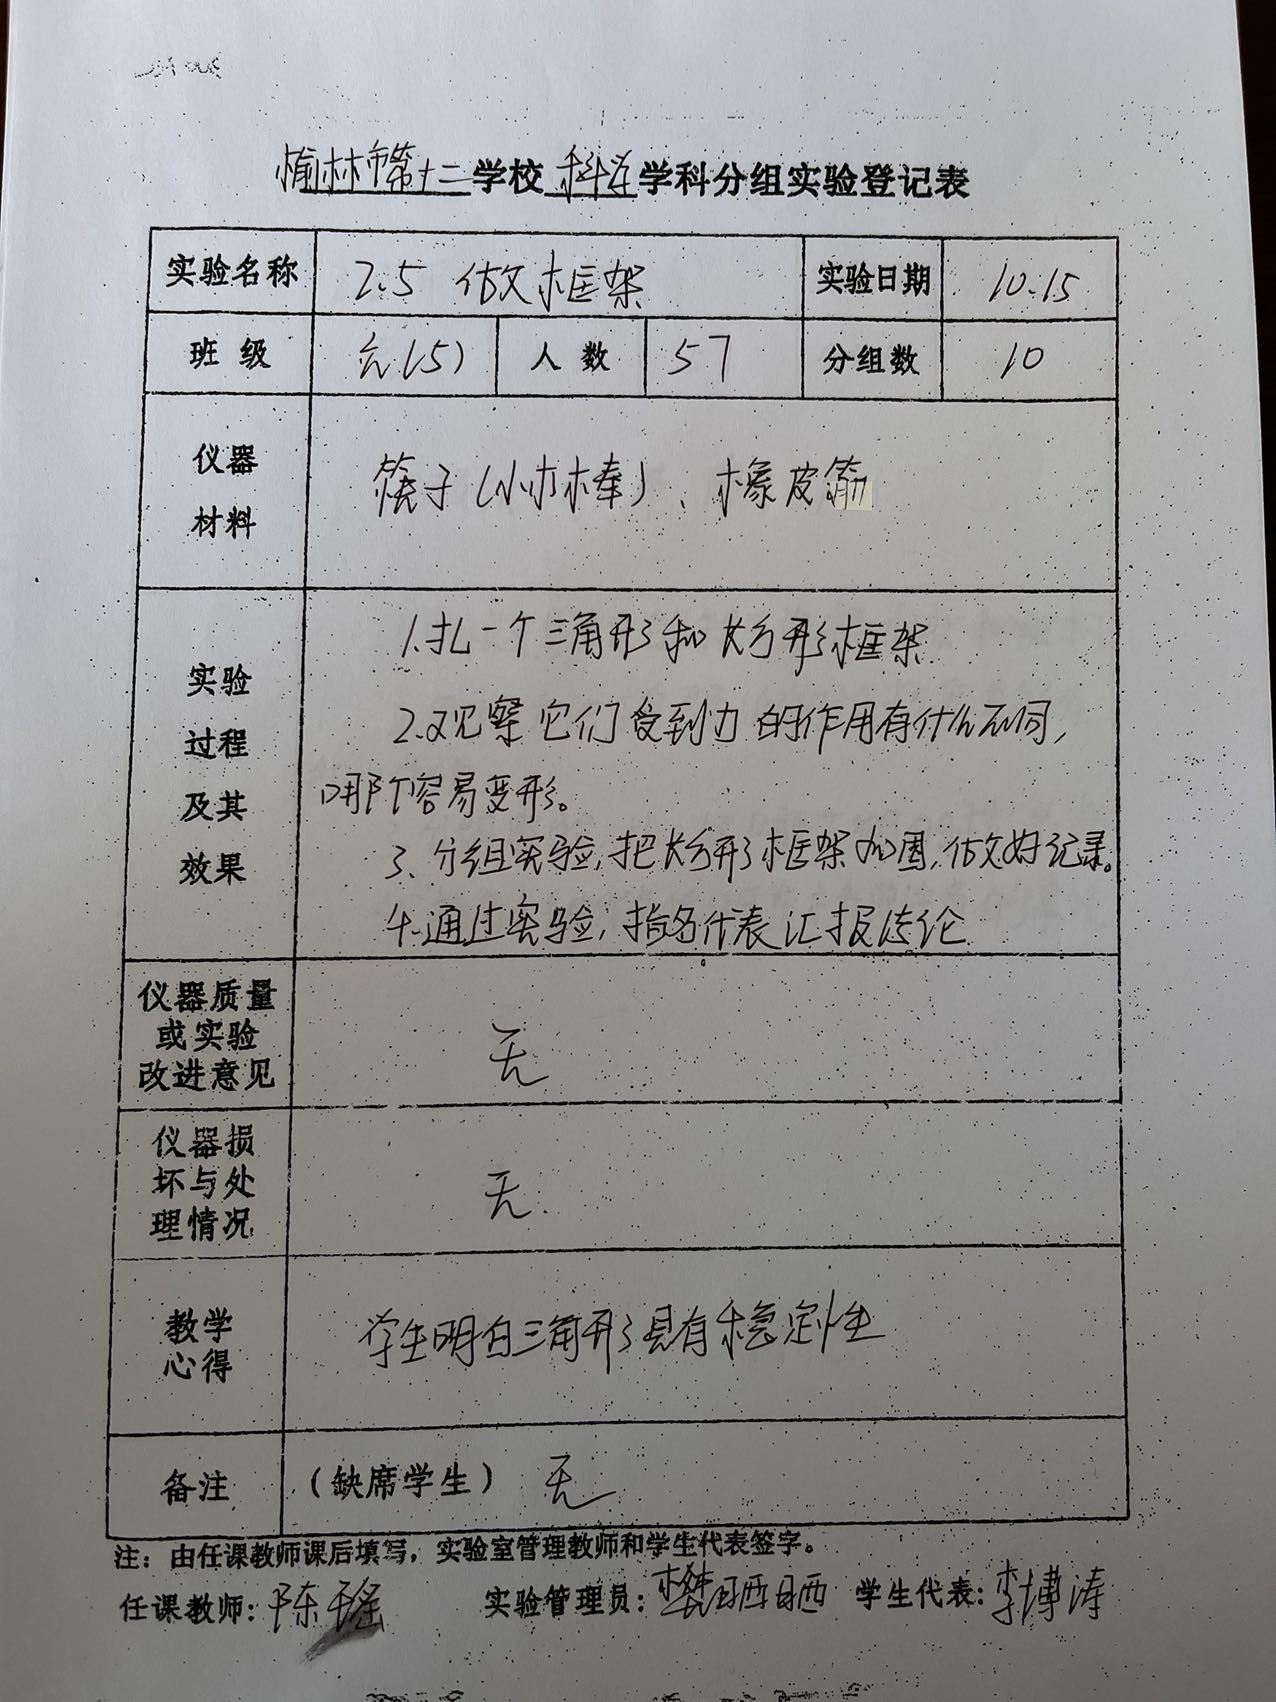 榆林市第十二学校科学学科分组实验登记表
实验名称 2.5 做框架 实验日期 10.15
班级 六(5) 人数 57 分组数 10
仪器
材料
筷子(小木棒)、橡皮筋
实验
过程
及其
效果
1.扎一个三角形和长方形框架
2.观察它们受到力的作用有什么不同,
哪个容易变形。
3.分组实验,把长方形框架加固,做好记录。
4.通过实验,指名代表汇报结论
仪器质量
或实验
改进意见
无
仪器损
坏与处
理情况
无.
教学
心得
学生明白三角形具有稳定性
备注 (缺席学生) 无
注:由任课教师课后填写,实验室管理教师和学生代表签字。
任课教师:陈瑶 实验管理员: 学生代表:李博涛